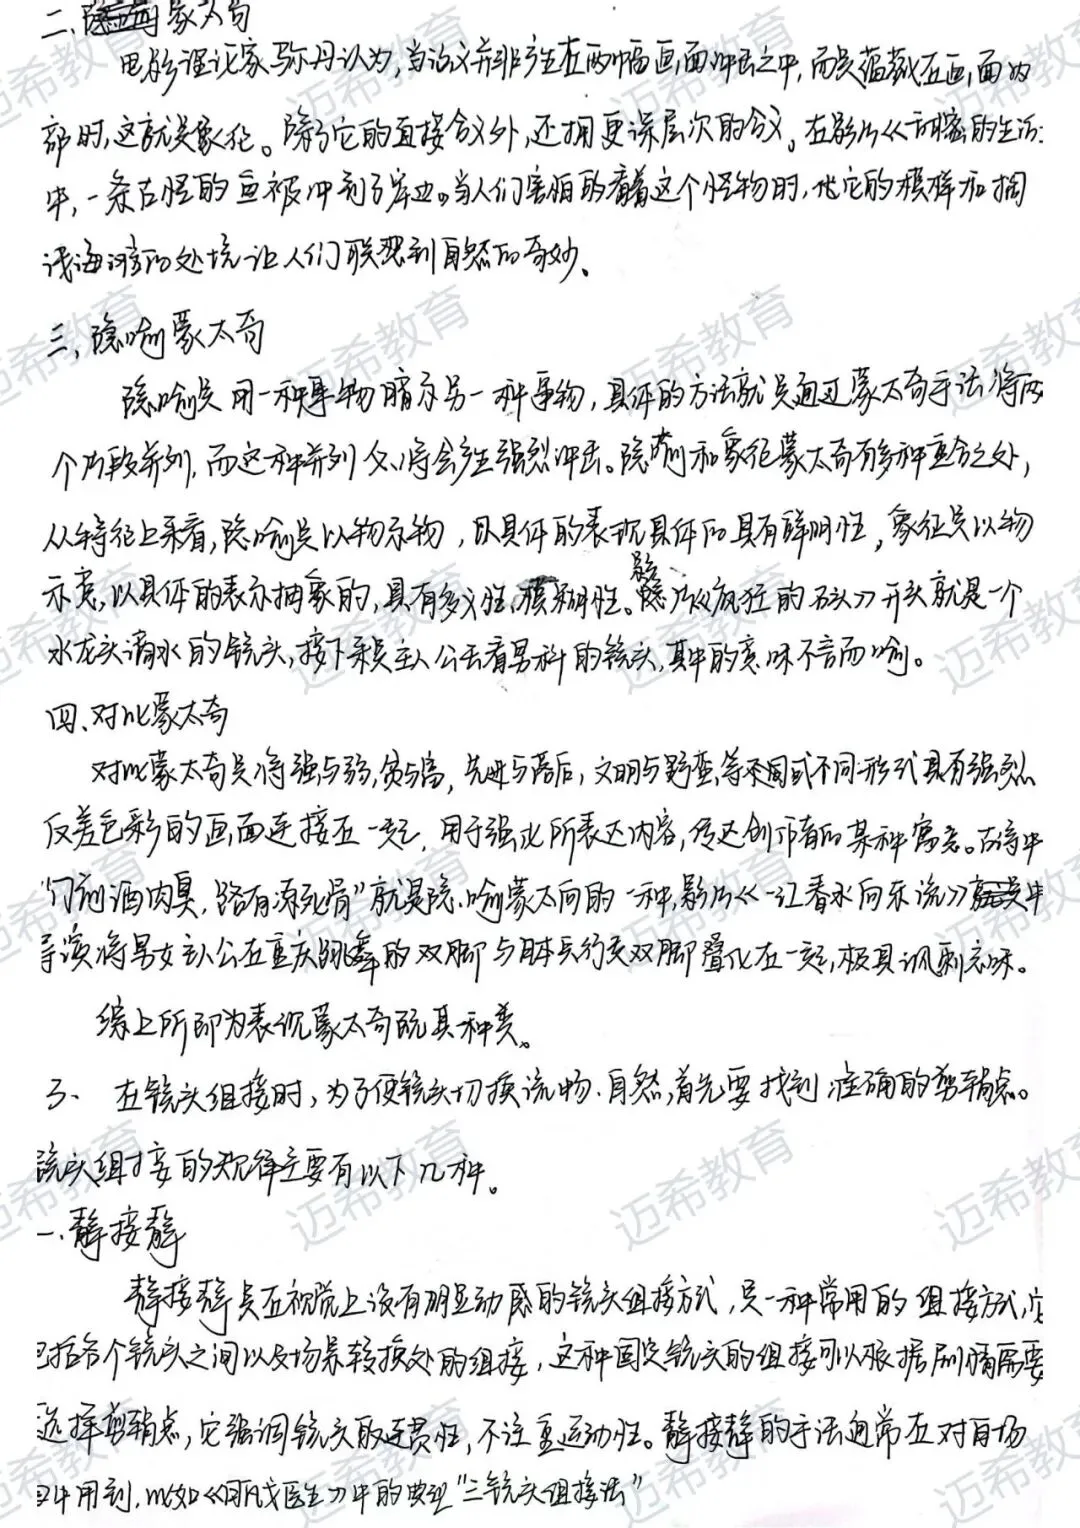 二、隐喻蒙太奇
电影理论家马尔丹认为,当涵义并非产生在两幅画面冲击之中,而是蕴藏在画面内
部时,这就是象征。除了它的直接含义外,还拥更深层次的含义。在影片《甜蜜的生活
中,一条古怪的鱼被冲到了岸边。当人们害怕的看着这个怪物时,他它的模样和搁
浅海滩的处境让人们联想到自然的奇妙、
三、隐喻蒙太奇
隐喻是用一种事物暗示另一种事物,具体的方法就是通过蒙太奇手法将两
个片段并列,而这种并列又将会产生强烈冲击。隐喻和象征蒙太奇有多种重合之处,
从特征上来看,隐喻是以物示物,以具体的表现具体的具有鲜明性,象征是以物
示意,以具体的表示抽象的,具有多义性,模糊性。影片《疯狂的石头》开头就是一个
水龙头滴水的镜头,接下来是主人公去看男科的镜头,其中的意味不言而喻。
四、对比蒙太奇
对比蒙太奇是将强与弱,贫与富,先进与落后,文明与野蛮,等不同或不同形式具有强烈
反差色彩的画面连接在一起,用于强化所表达内容,传达创作者的某种寓意。古诗中
"门前酒肉臭,路有冻死骨"就是隐喻蒙太奇的一种,影片《一江春水向东流》中
导演将男女主人公在重庆跳舞的双脚与日本兵行走双脚叠化在一起,极具讽刺意味。
综上所即为表现蒙太奇既其种类。
3、 在镜头组接时,为了使镜头切换流畅、自然,首先要找到准确的剪辑点。
镜头组接的规律主要有以下几种。
一.静接静
静接静是在视觉上没有明显动感的镜头组接方式,是一种常用的组接方式,它
包括各个镜头之间以及场景转换处的组接,这种固定镜头的组接可以根据剧情需要
选择剪辑点,它强调镜头的连贯性,不注重运动性。静接静的手法通常在对白场
中用到,比如《阿戈医生》中的典型"三镜头组接法"
迈希教育